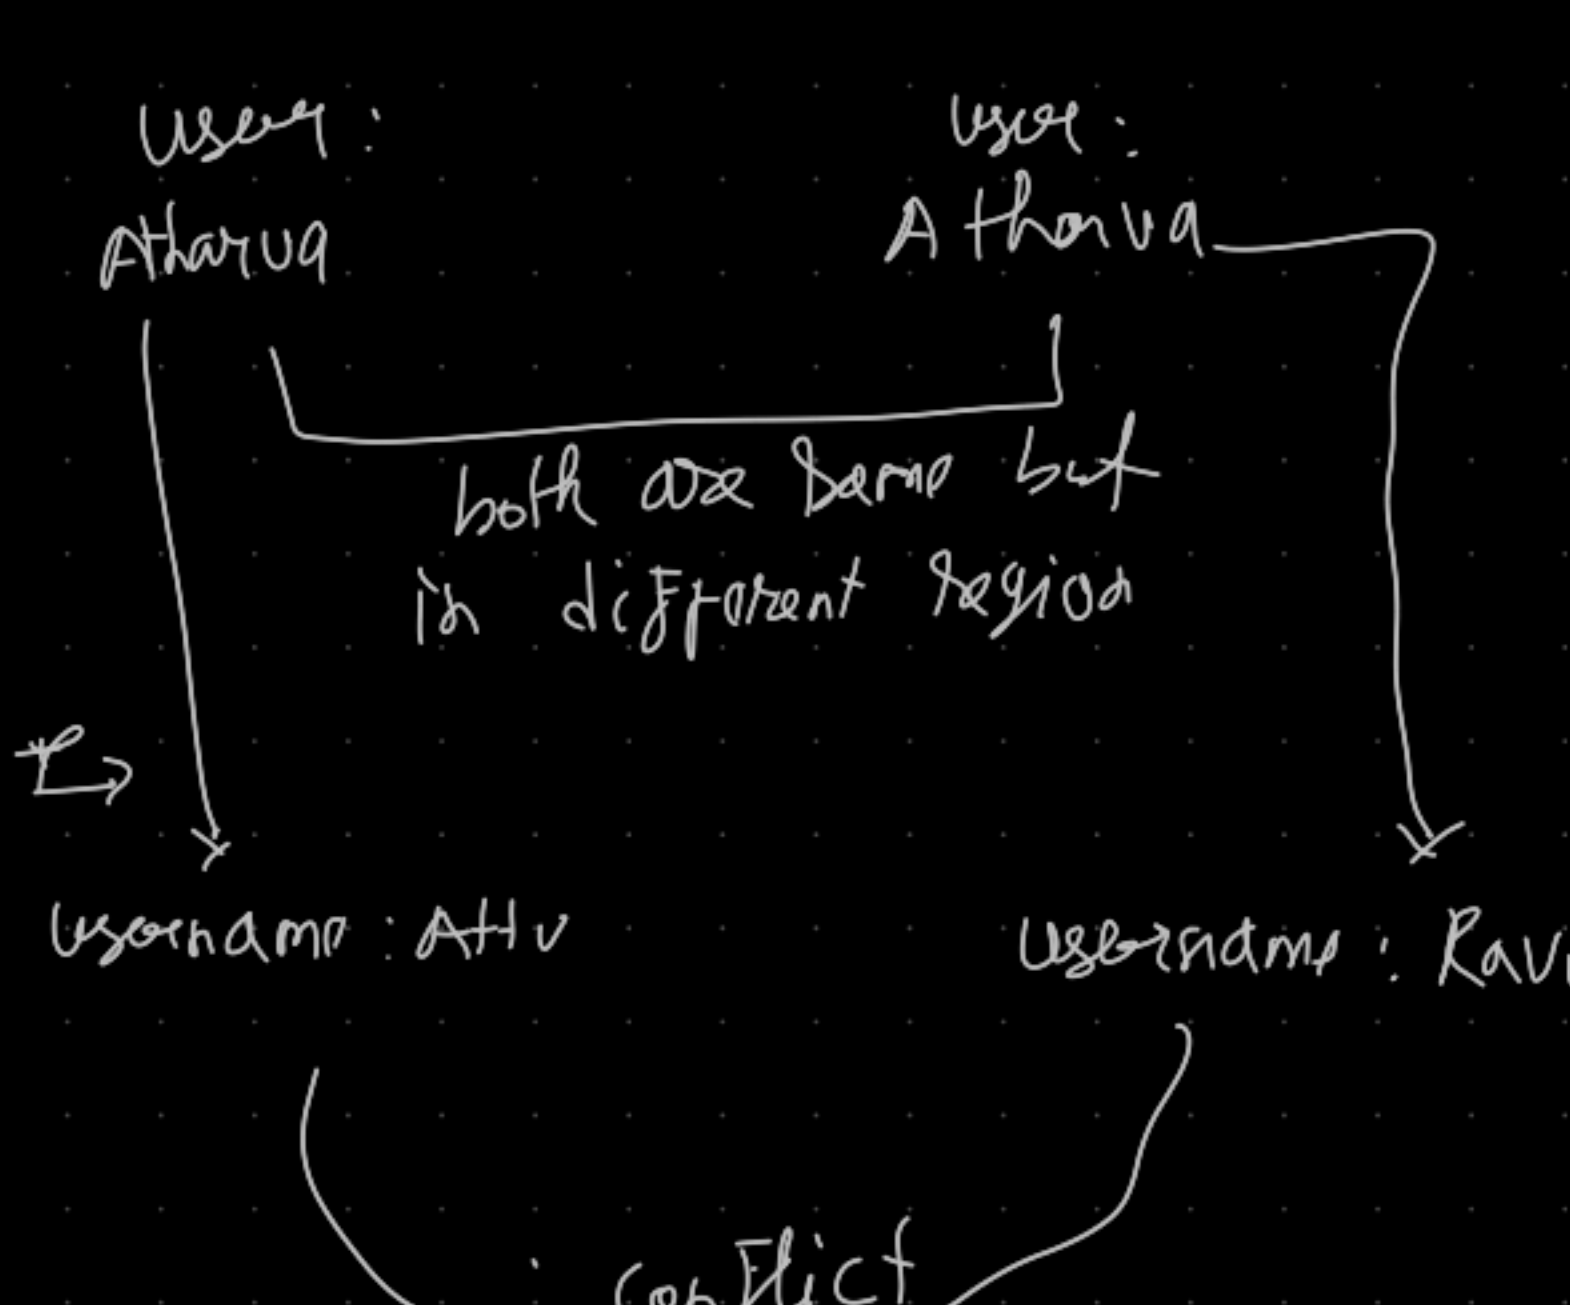 User :
User :
Atharva
Atharva
both are Same but
in different region
t
username : Athv
username : Ravi
Conflict